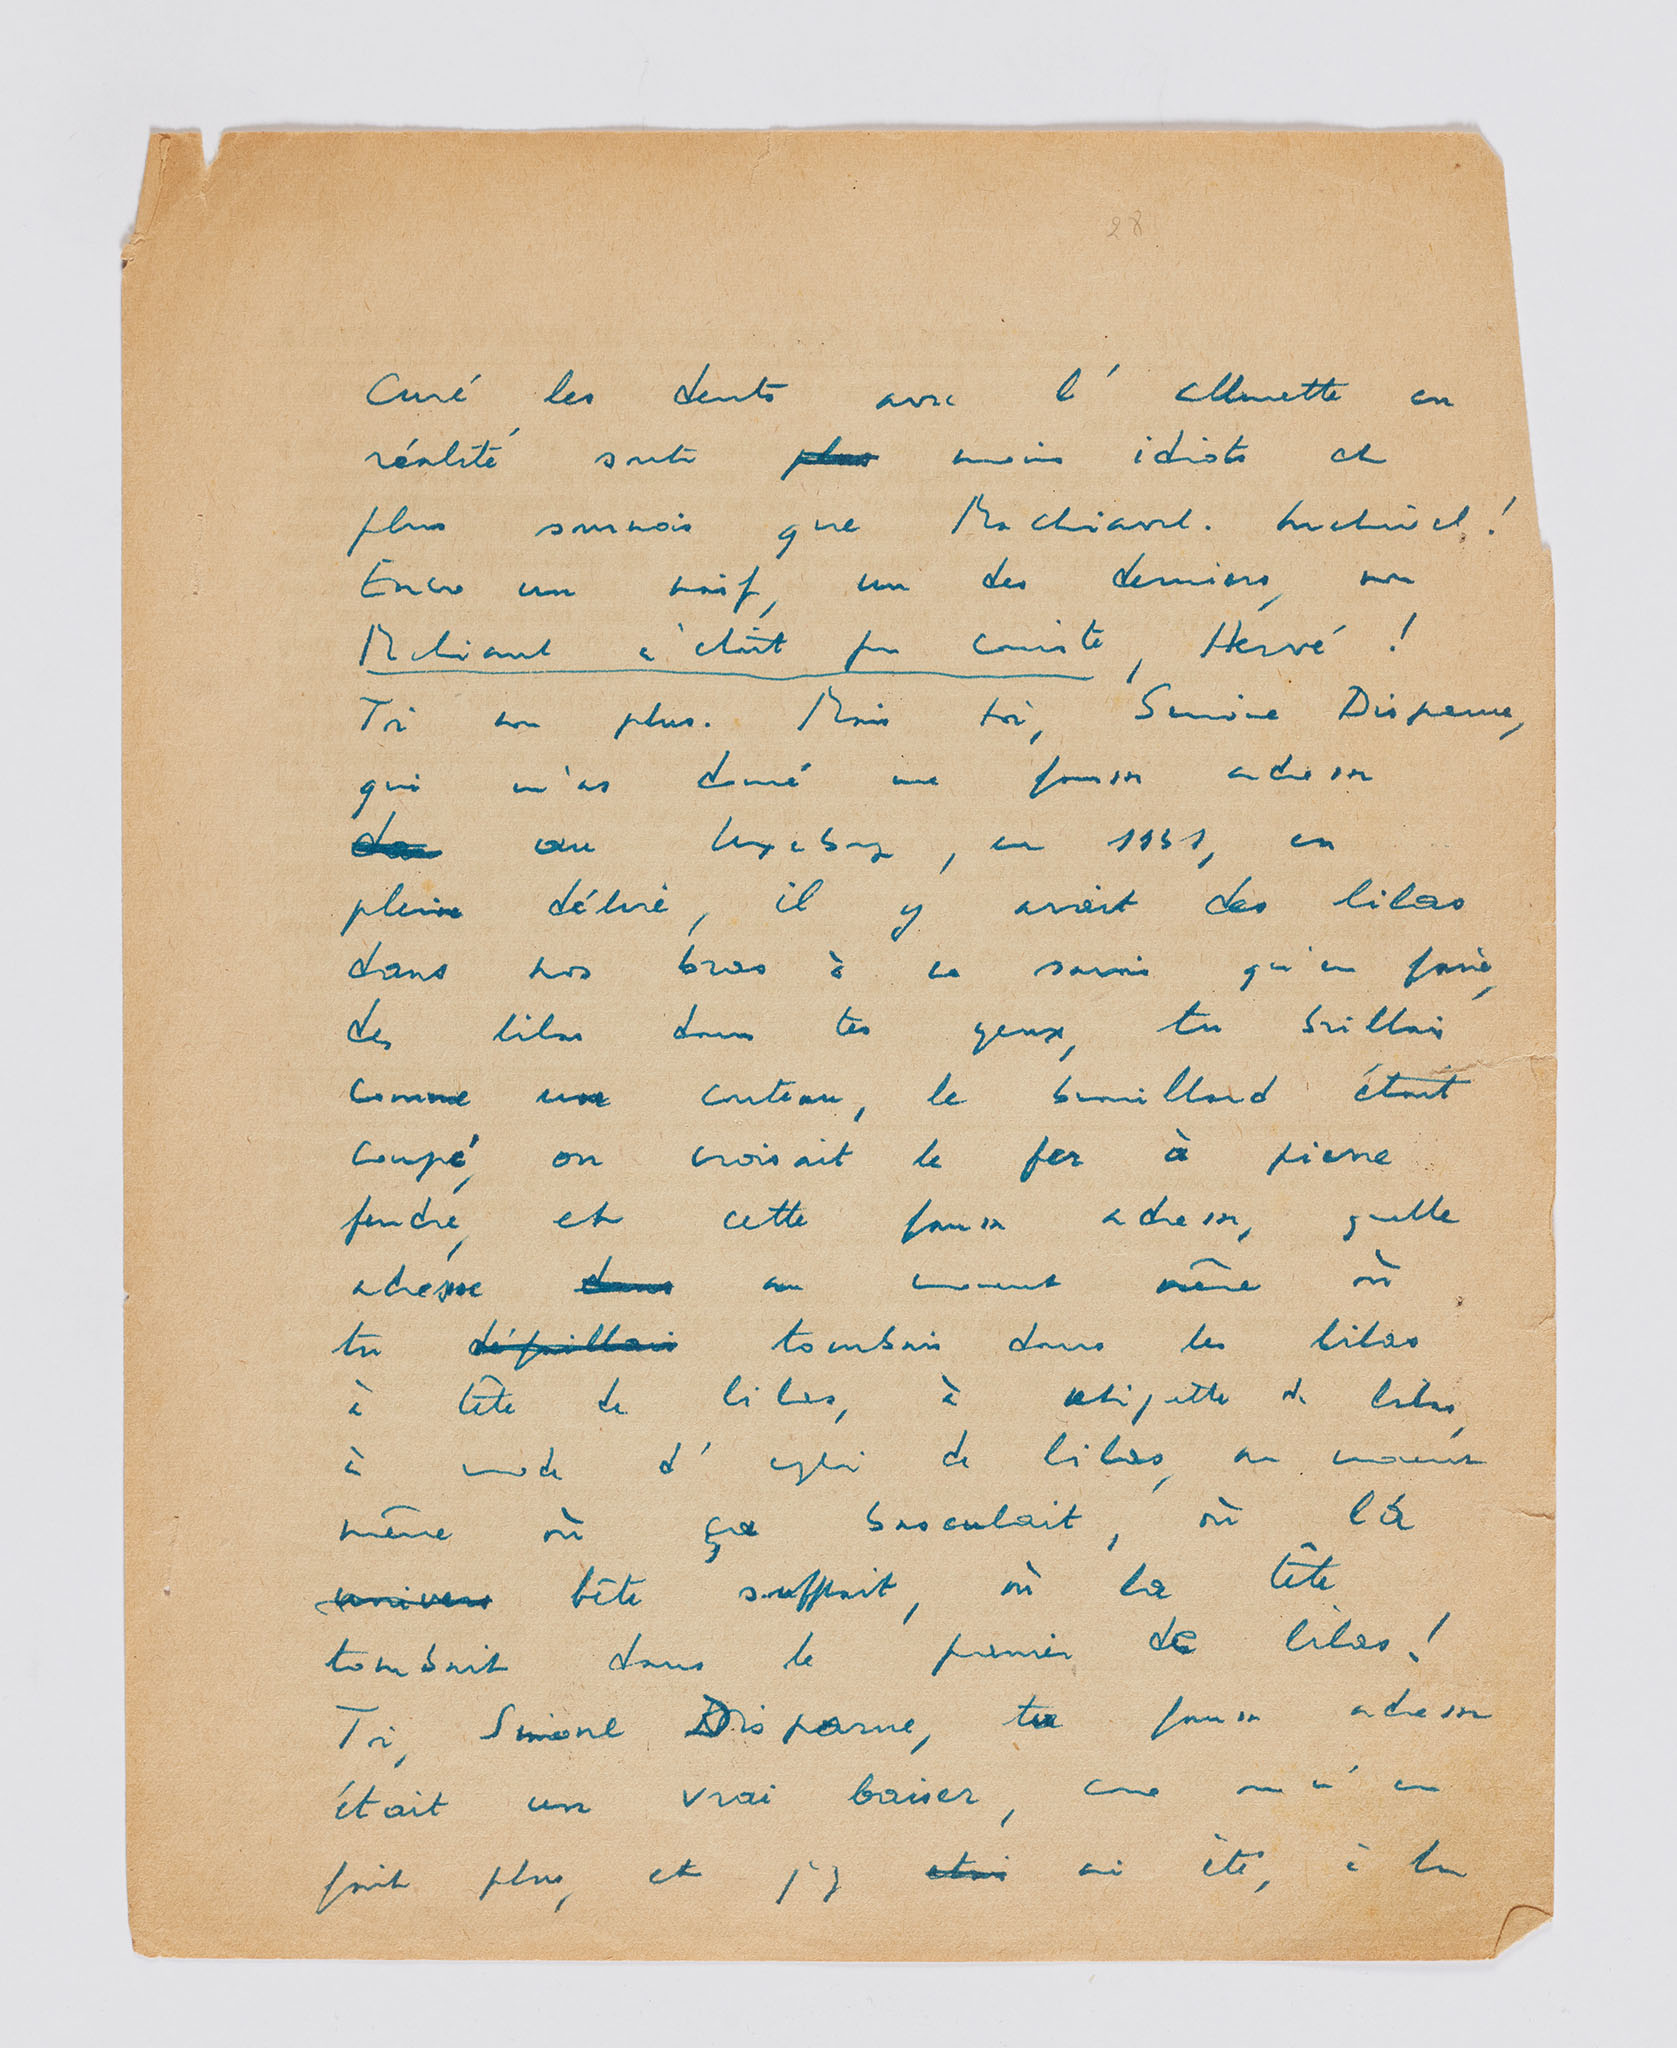 28
Curé les dents avec l'allumette en
réalité sont plus moins idiots et
plus sournois que Machiavel. Machiavel !
Encore un naïf, un des derniers, non
Machiavel n'était pas, Hervé !
Toi non plus. Mais toi, Simone Disparue,
qui m'as donné une fausse adresse
au Luxembourg, en 1931, en
pleine délire, il y avait des lilas
dans nos bras à ne savoir qu'en faire,
des lilas dans tes yeux, tu brillais
comme un couteau, le brouillard était
coupé, on croisait le fer à pierre
fendre, et cette fausse adresse, quelle
adresse dans au moment même où
tu défaillais tombais dans les lilas
à tête de lilas, à étiquette de lilas,
à mode d'emploi de lilas, au moment
même où ça basculait, où la
univers bête suffisait, où la tête
tombait dans le panier de lilas !
Toi, Simone Disparue, ta fausse adresse
était un vrai baiser, comme on n'en
fait plus, et j'y étais ai été, à la